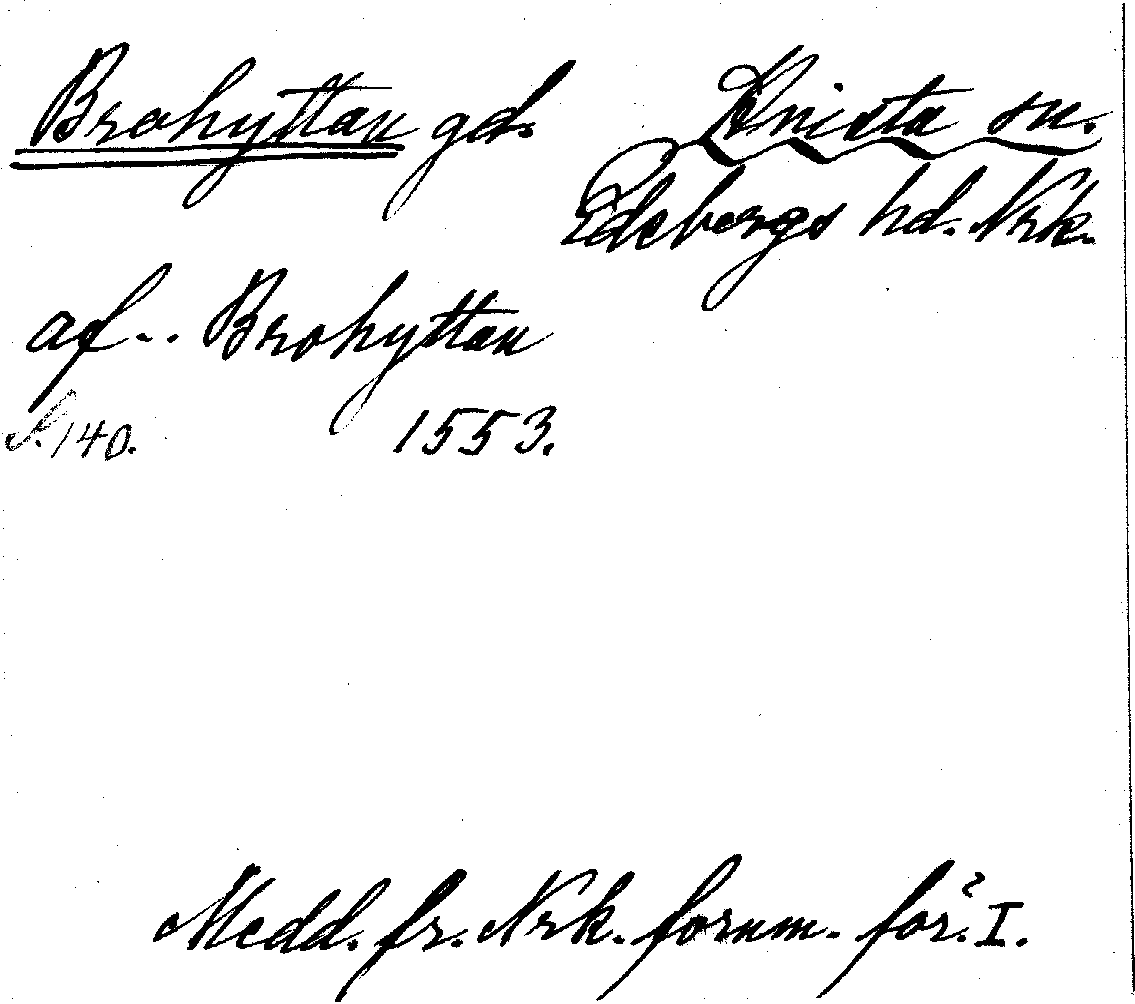 Brohyttan gd. Knista sn.
Edsbergs hd. Nrk.
af.. Brohyttan
S. 140. 1553.
Medd. fr. Nrk. fornm.för. I.